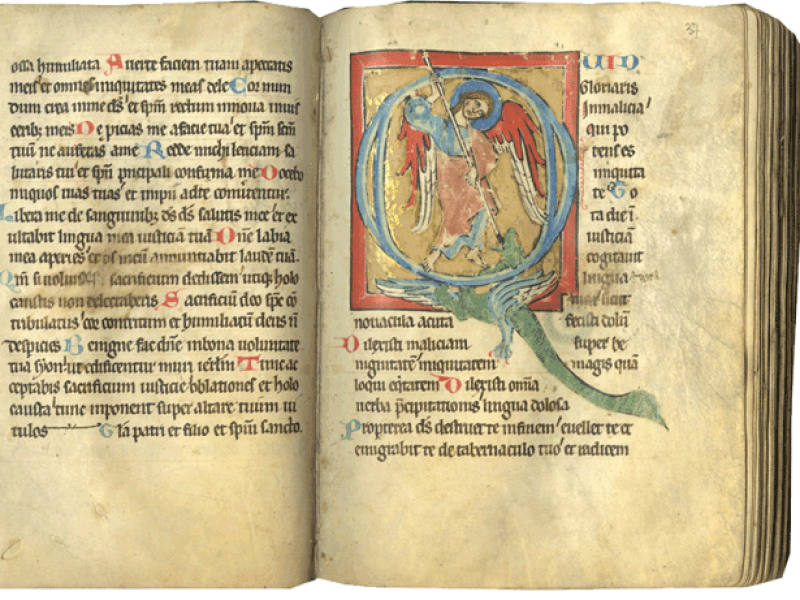 ossa humiliata Auerte faciem tuam apeccatis
meis et omnes iniquitates meas dele Cor mun
dum crea inme ds et spm rectum innoua inuis
ceribz meis Ne proicias me afacie tua et spm scm
tuum ne auferas ame Redde michi leticiam sa
lutaris tui et spu pncipali confirma me Docebo
iniquos uias tuas et impii adte conuertentur
Libera me de sanguinibz ds ds salutis mee et ex
ultabit lingua mea iusticiam tuam Dne labia
mea aperies et os meum annuntiabit laudem tuam
Qm si uoluisses sacrificium dedissem utiqz holo
caustis non delectaberis Sacrificium deo spc con
tribulatus cor contritum et humiliatum deus n
despicies Benigne fac dne inbona uoluntate
tua syon ut edificentur muri ierlm Tunc ac
ceptabis sacrificium iusticie oblationes et holo
causta tunc imponent super altare tuum ui
tulos Gla patri et filio et spui sancto
37
QUID
Gloriaris
Inmalicia
qui po
tens es
iniquita
te To
ta die i
iusticiam
cogitauit
lingua
tua sicut
nouacula acuta fecisti dolu
Dilexisti maliciam super be
nignitatem iniquitatem magis quam
loqui eqitatem Dilexisti omia
uerba pcipitationis lingua dolosa
Propterea ds destruet te infinem euellet te et
emigrabit te de tabernaculo tuo et radicem